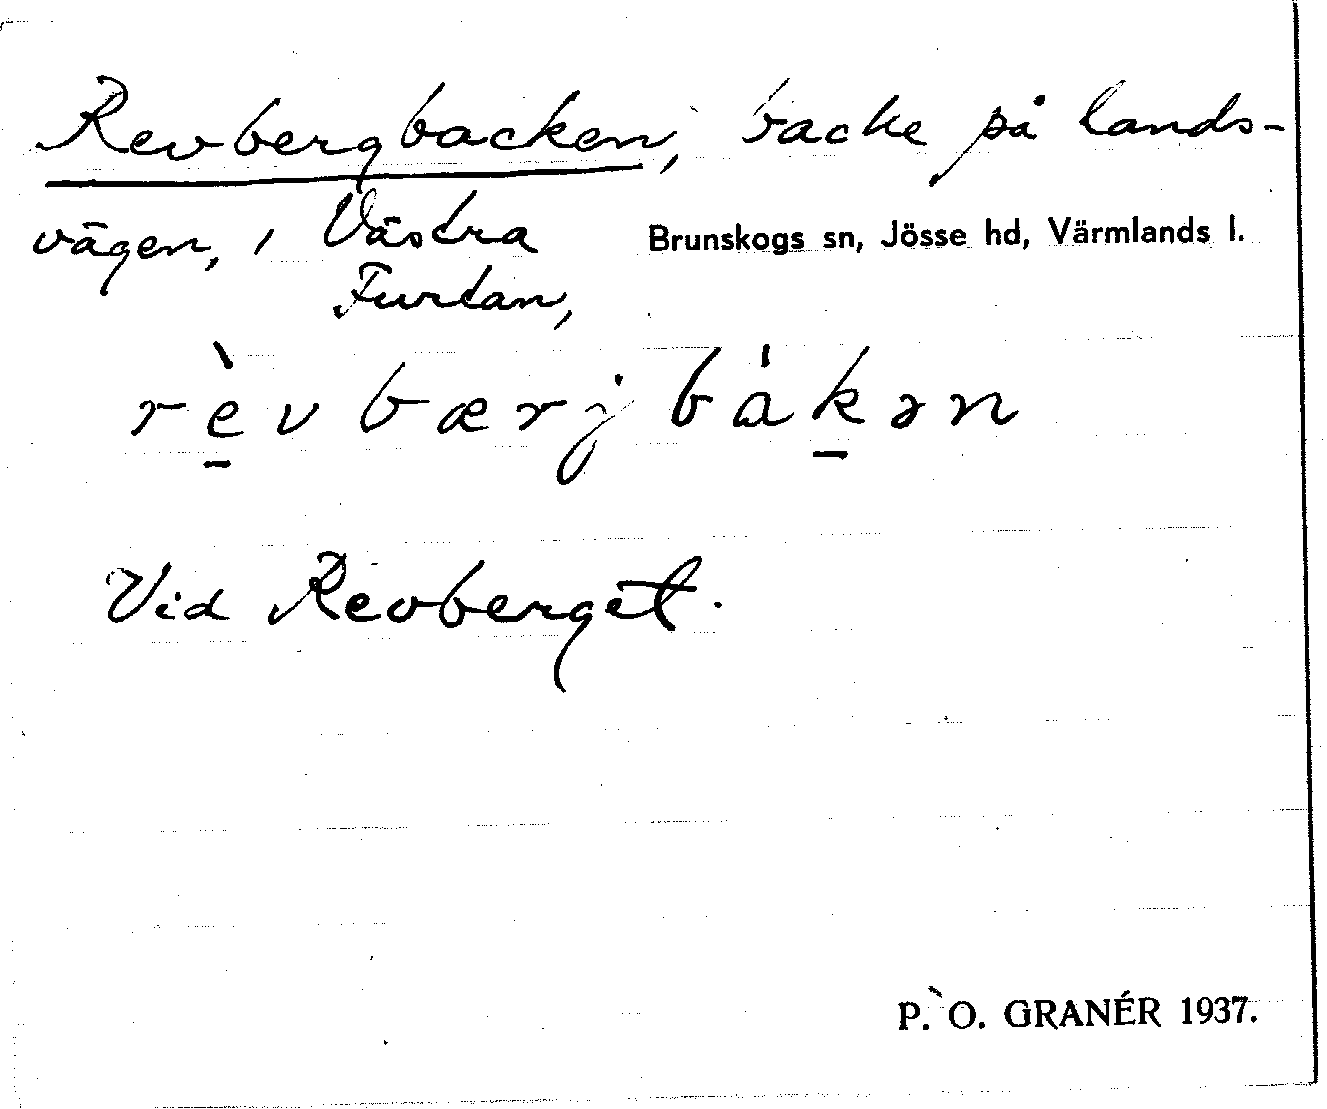 Revbergbacken, backe på lands-
vägen, i Västra Brunskogs sn, Jösse hd, Värmlands l.
Furtan,
rèvbærjbàkən
Vid Revberget.
P. O. GRANÉR 1937.